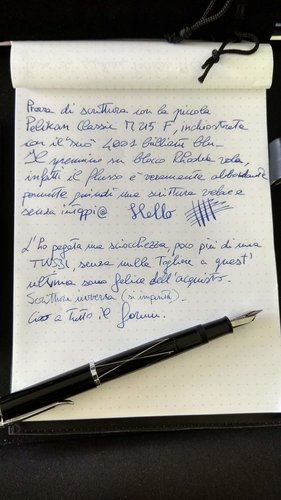 Prova di scrittura con la piccola
Pelikan Classic M 215 F, inchiostrata
con il "suo" 4001 Brilliant blu.
Il pennino su blocco Rhodia vola,
infatti il flusso è veramente abbondante
permette quindi una scrittura veloce e
senza intoppi@ Hello
L'ho pagata una sciocchezza, poco più di una
TWSBI, senza nulla togliere a quest'
ultima sono felice dell'acquisto.
Scrittura inversa (si impunta).
Ciao a tutto il forum.